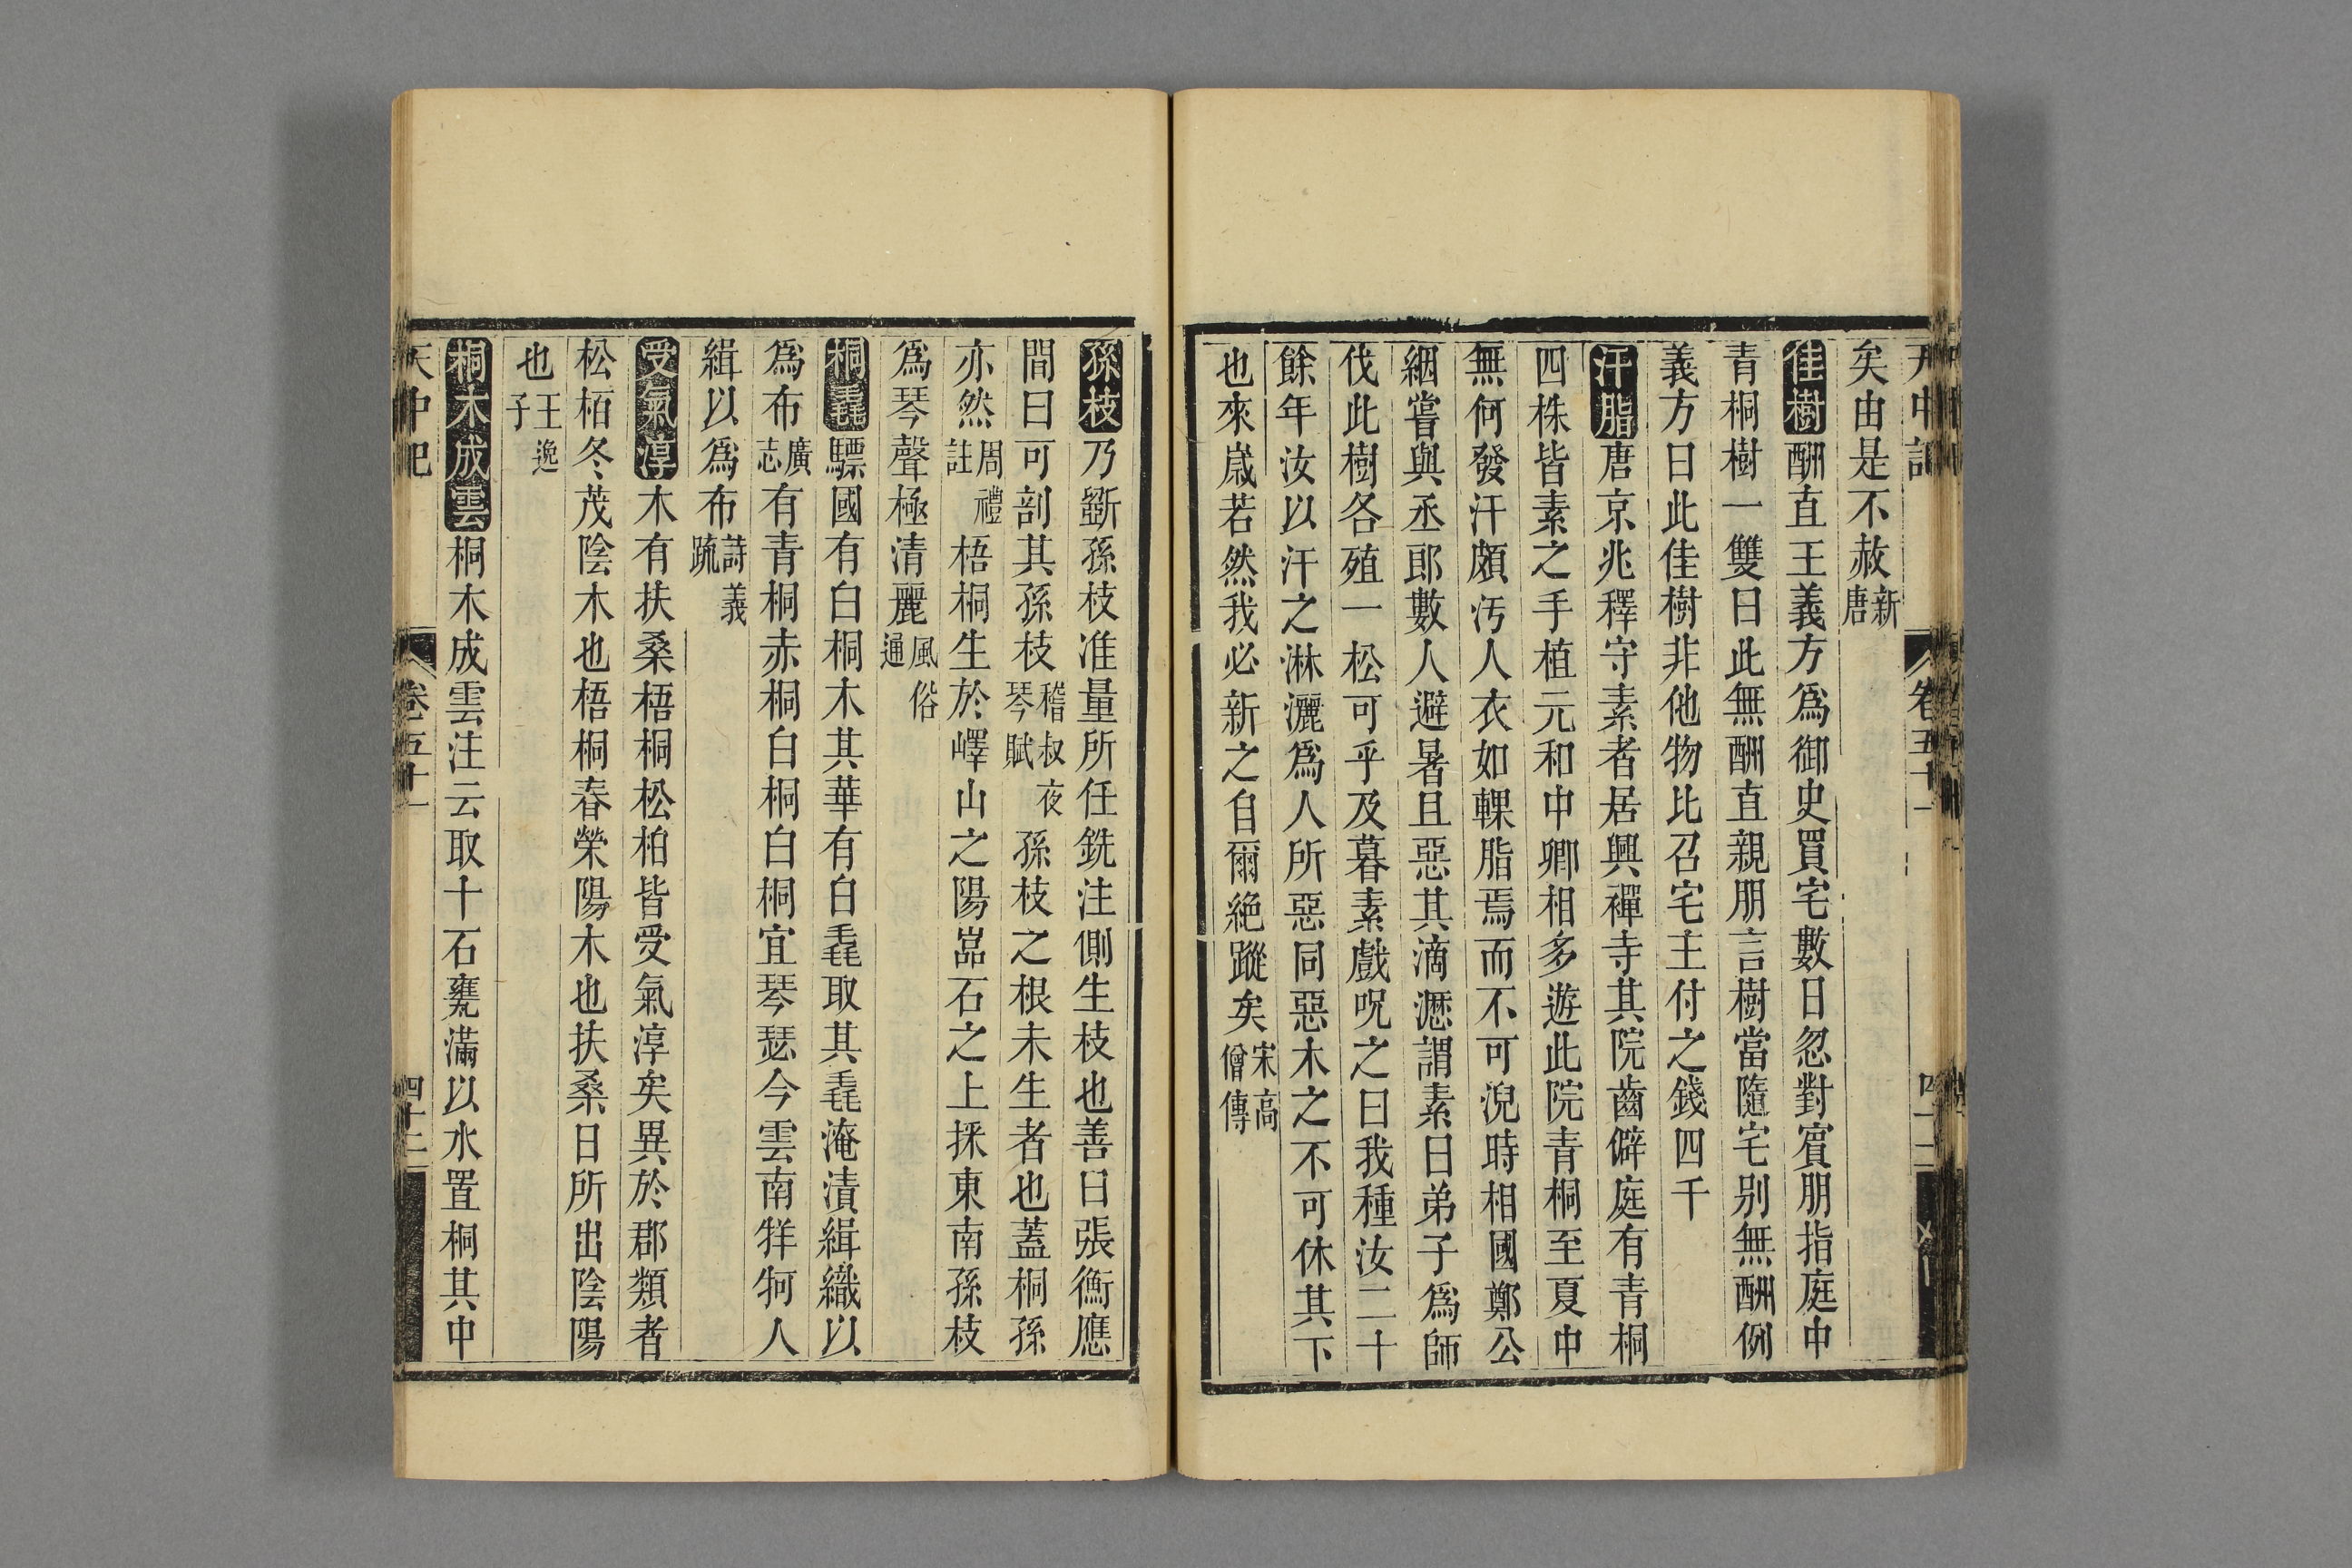 天中記
卷五十一
矣由是不赦新唐
佳樹酬直王義方爲御史買宅數日忽對賓朋指庭中
青桐樹一雙曰此無酬直親朋言樹當隨宅别無酬例
義方曰此佳樹非他物比召宅主付之錢四千
汗脂唐京兆釋守素者居興禪寺其院齒僻庭有青桐
四株皆素之手植元和中卿相多遊此院青桐至夏中
無何發汗頗汚人衣如輠脂焉而不可浼時相國鄭公
絪嘗與丞郎數人避暑且惡其滴瀝謂素曰弟子爲師
伐此樹各殖一松可乎及暮素戲呪之曰我種汝二十
餘年汝以汗之淋灑爲人所惡同惡木之不可休其下
也來嵗若然我必新之自爾絶蹤矣宋高僧傳
孫枝乃斵孫枝准量所任銑注側生枝也善曰張衡應
間曰可剖其孫枝稽叔夜琴賦孫枝之根未生者也蓋桐孫
亦然周禮註梧桐生於嶧山之陽嵓石之上採東南孫枝
爲琴聲極清麗風俗通
桐毳驃國有白桐木其華有白毳取其毳淹漬緝織以
爲布廣志有青桐赤桐白桐白桐宜琴瑟今雲南牂牁人
緝以爲布詩義疏
受氣淳木有扶桑梧桐松柏皆受氣淳矣異於郡類者
松栢冬茂陰木也梧桐春榮陽木也扶桑日所出陰陽
也王逸子
桐木成雲桐木成雲注云取十石甕滿以水置桐其中
天中記
卷五十一
四十二